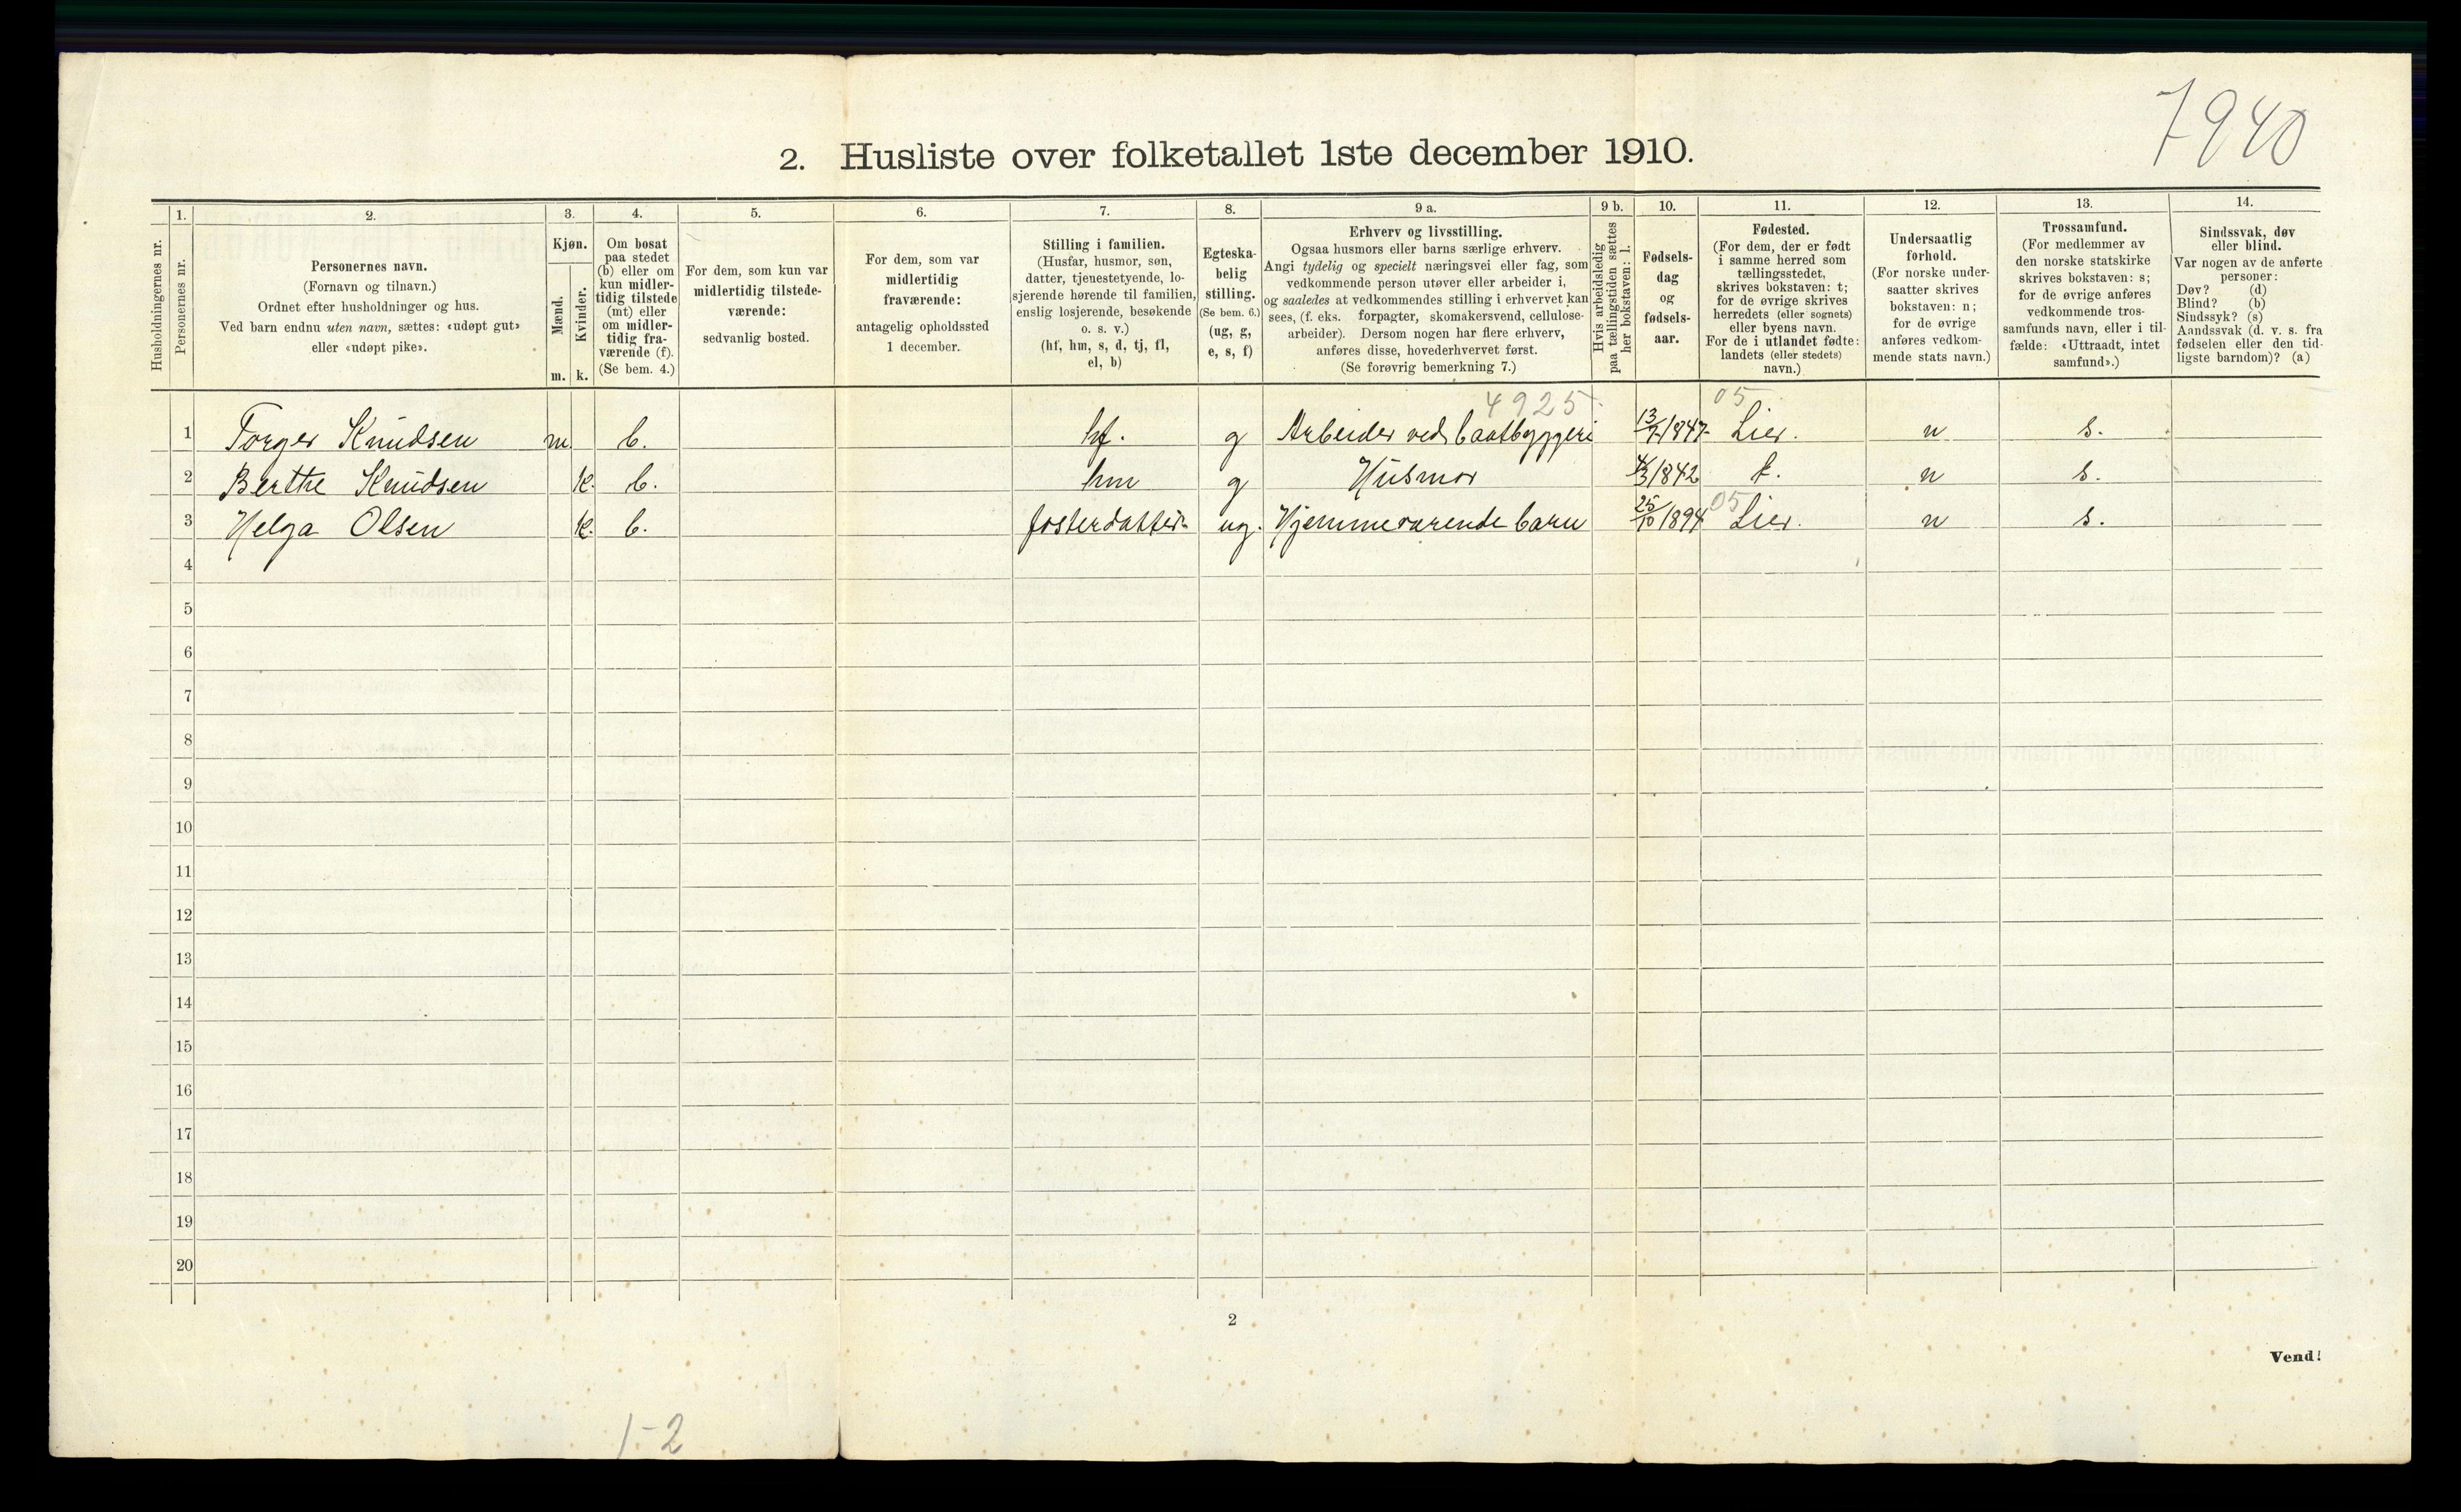 7940
2. Husliste over folketallet 1ste december 1910.
Husholdningernes nr.
1.
Personernes nr.
2.
Personernes navn.
(Fornavn og tilnavn.)
Ordnet efter husholdninger og hus.
Ved barn endnu uten navn, sættes: «udøpt gut»
eller «udøpt pike».
3.
Kjøn.
Mænd.
Kvinder.
m. k.
4.
Om bosat
paa stedet
(b) eller om
kun midler-
tidig tilstede
(mt) eller
om midler-
tidig fra-
værende (f).
(Se bem. 4.)
5.
For dem, som kun var
midlertidig tilstede-
værende:
sedvanlig bosted.
6.
For dem, som var
midlertidig
fraværende:
antagelig opholdssted
1 december.
7.
Stilling i familien.
(Husfar, husmor, søn,
datter, tjenestetyende, lo-
sjerende hørende til familien,
enslig losjerende, besøkende
o. s. v.)
(hf, hm, s, d, tj, fl,
el, b)
8.
Egteska-
belig
stilling.
(Se bem. 6.)
(ug, g,
e, s, f)
9 a.
Erhverv og livsstilling.
Ogsaa husmors eller barns særlige erhverv.
Angi tydelig og specielt næringsvei eller fag, som
vedkommende person utøver eller arbeider i,
og saaledes at vedkommendes stilling i erhvervet kan
sees, (f. eks. forpagter, skomakersvend, cellulose-
arbeider). Dersom nogen har flere erhverv,
anføres disse, hovederhvervet først.
(Se forøvrig bemerkning 7.)
9 b.
Hvis arbeidsledig
paa tællingstiden sættes
her bokstaven: l.
10.
Fødsels-
dag
og
fødsels-
aar.
11.
Fødested.
(For dem, der er født
i samme herred som
tællingsstedet,
skrives bokstaven: t;
for de øvrige skrives
herredets (eller sognets)
eller byens navn.
For de i utlandet fødte:
landets (eller stedets)
navn.)
12.
Undersaatlig
forhold.
(For norske under-
saatter skrives
bokstaven: n;
for de øvrige
anføres vedkom-
mende stats navn.)
13.
Trossamfund.
(For medlemmer av
den norske statskirke
skrives bokstaven: s;
for de øvrige anføres
vedkommende tros-
samfunds navn, eller i til-
fælde: «Uttraadt, intet
samfund».)
14.
Sindssvak, døv
eller blind.
Var nogen av de anførte
personer:
Døv? (d)
Blind? (b)
Sindssyk? (s)
Aandssvak (d. v. s. fra
fødselen eller den tid-
ligste barndom)? (a)
4925. 05
1 Torger Knudsen m. b. hf. g Arbeider ved baatbyggeri 13/7 1847 Lier. n s.
2 Berthe Knudsen k. b. hm g Husmor 1842 t. n s.
05
3 Helga Olsen k. b. fosterdatter ug. Hjemmeværende barn 25/10 1894 Lier. n s.
4
5
6
7
8
9
10
11
12
13
14
15
16
17
18
19
20
2
Vend!
1-2